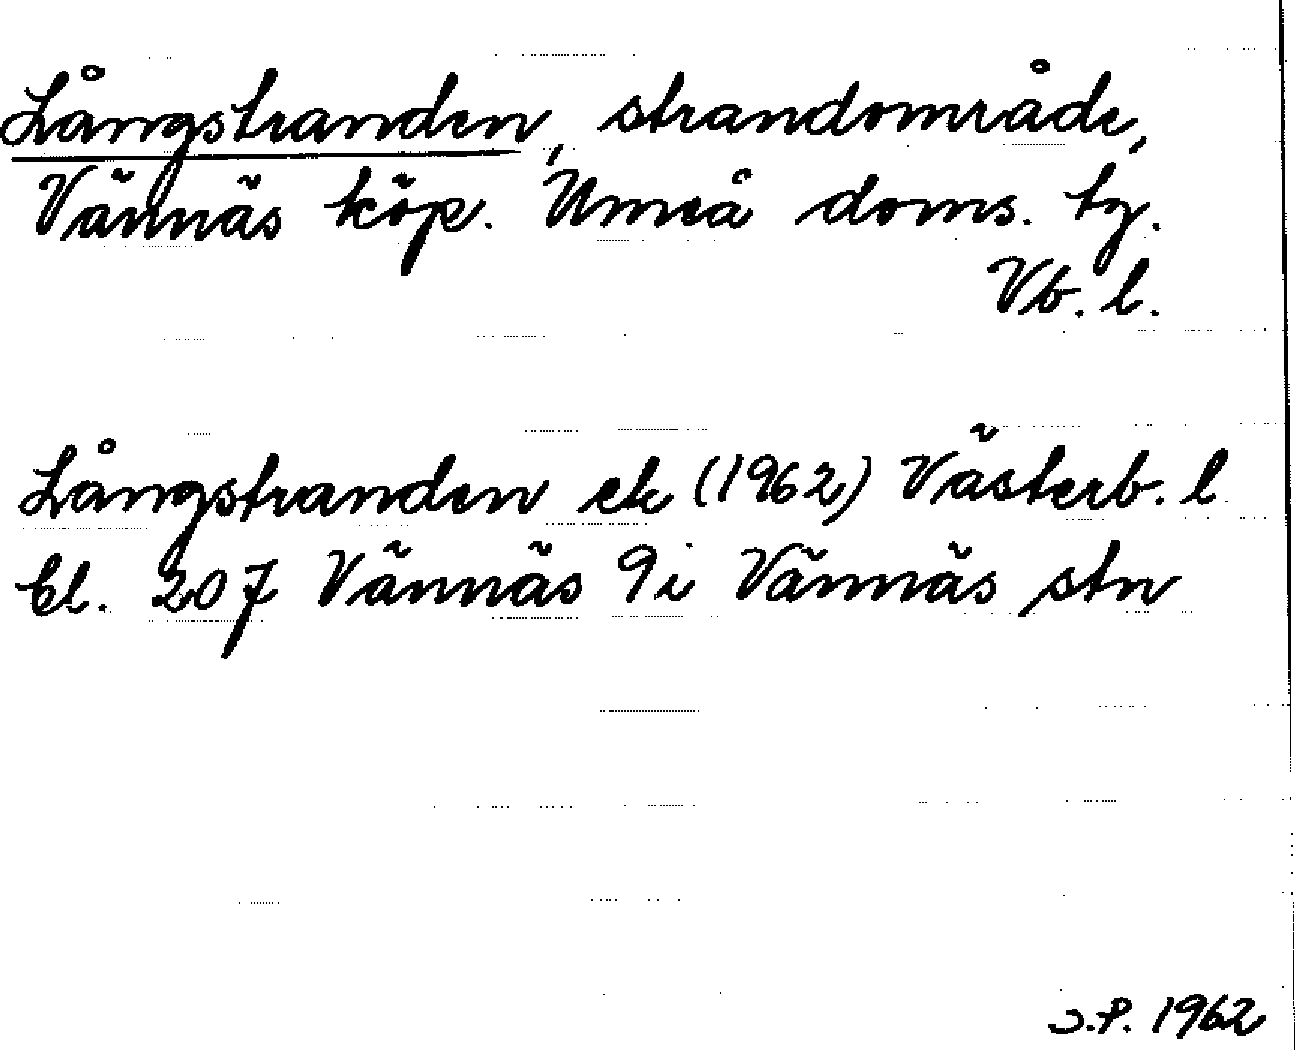 Långstranden, strandområde,
Vännäs köp. Umeå doms. tg.
Vb. l.
Långstranden ek (1962) Västerb. l
bl. 207 Vännäs 9i Vännäs stn
J.P. 1962